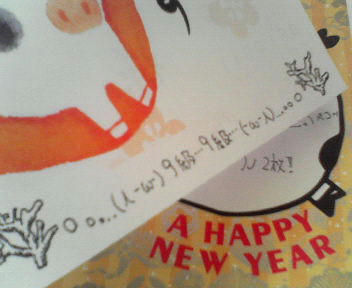 o o...(ﾉ-ω-) 9級...9級...(-ω-ヽ)...ooO
ル 2枚!!
A HAPPY
NEW YEAR